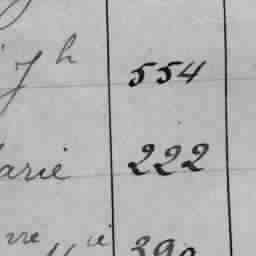 J h 554
arie 222
vre ie 390